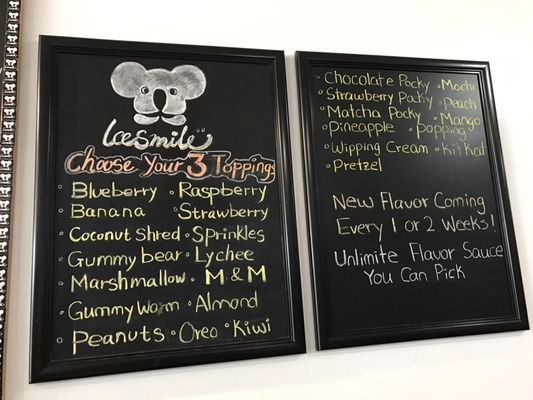 IceSmile
Choose Your 3 Toppings
Blueberry Raspberry
Banana Strawberry
Coconut Shred Sprinkles
Gummy bear Lychee
Marshmallow M&M
Gummy Worm Almond
Peanuts Oreo Kiwi
Chocolate Pocky Mochi
Strawberry Pocky Peach
Matcha Pocky Mango
Pineapple Popping
Wipping Cream KitKat
Pretzel
New Flavor Coming
Every 1 or 2 Weeks!
Unlimite Flavor Sauce
You Can Pick